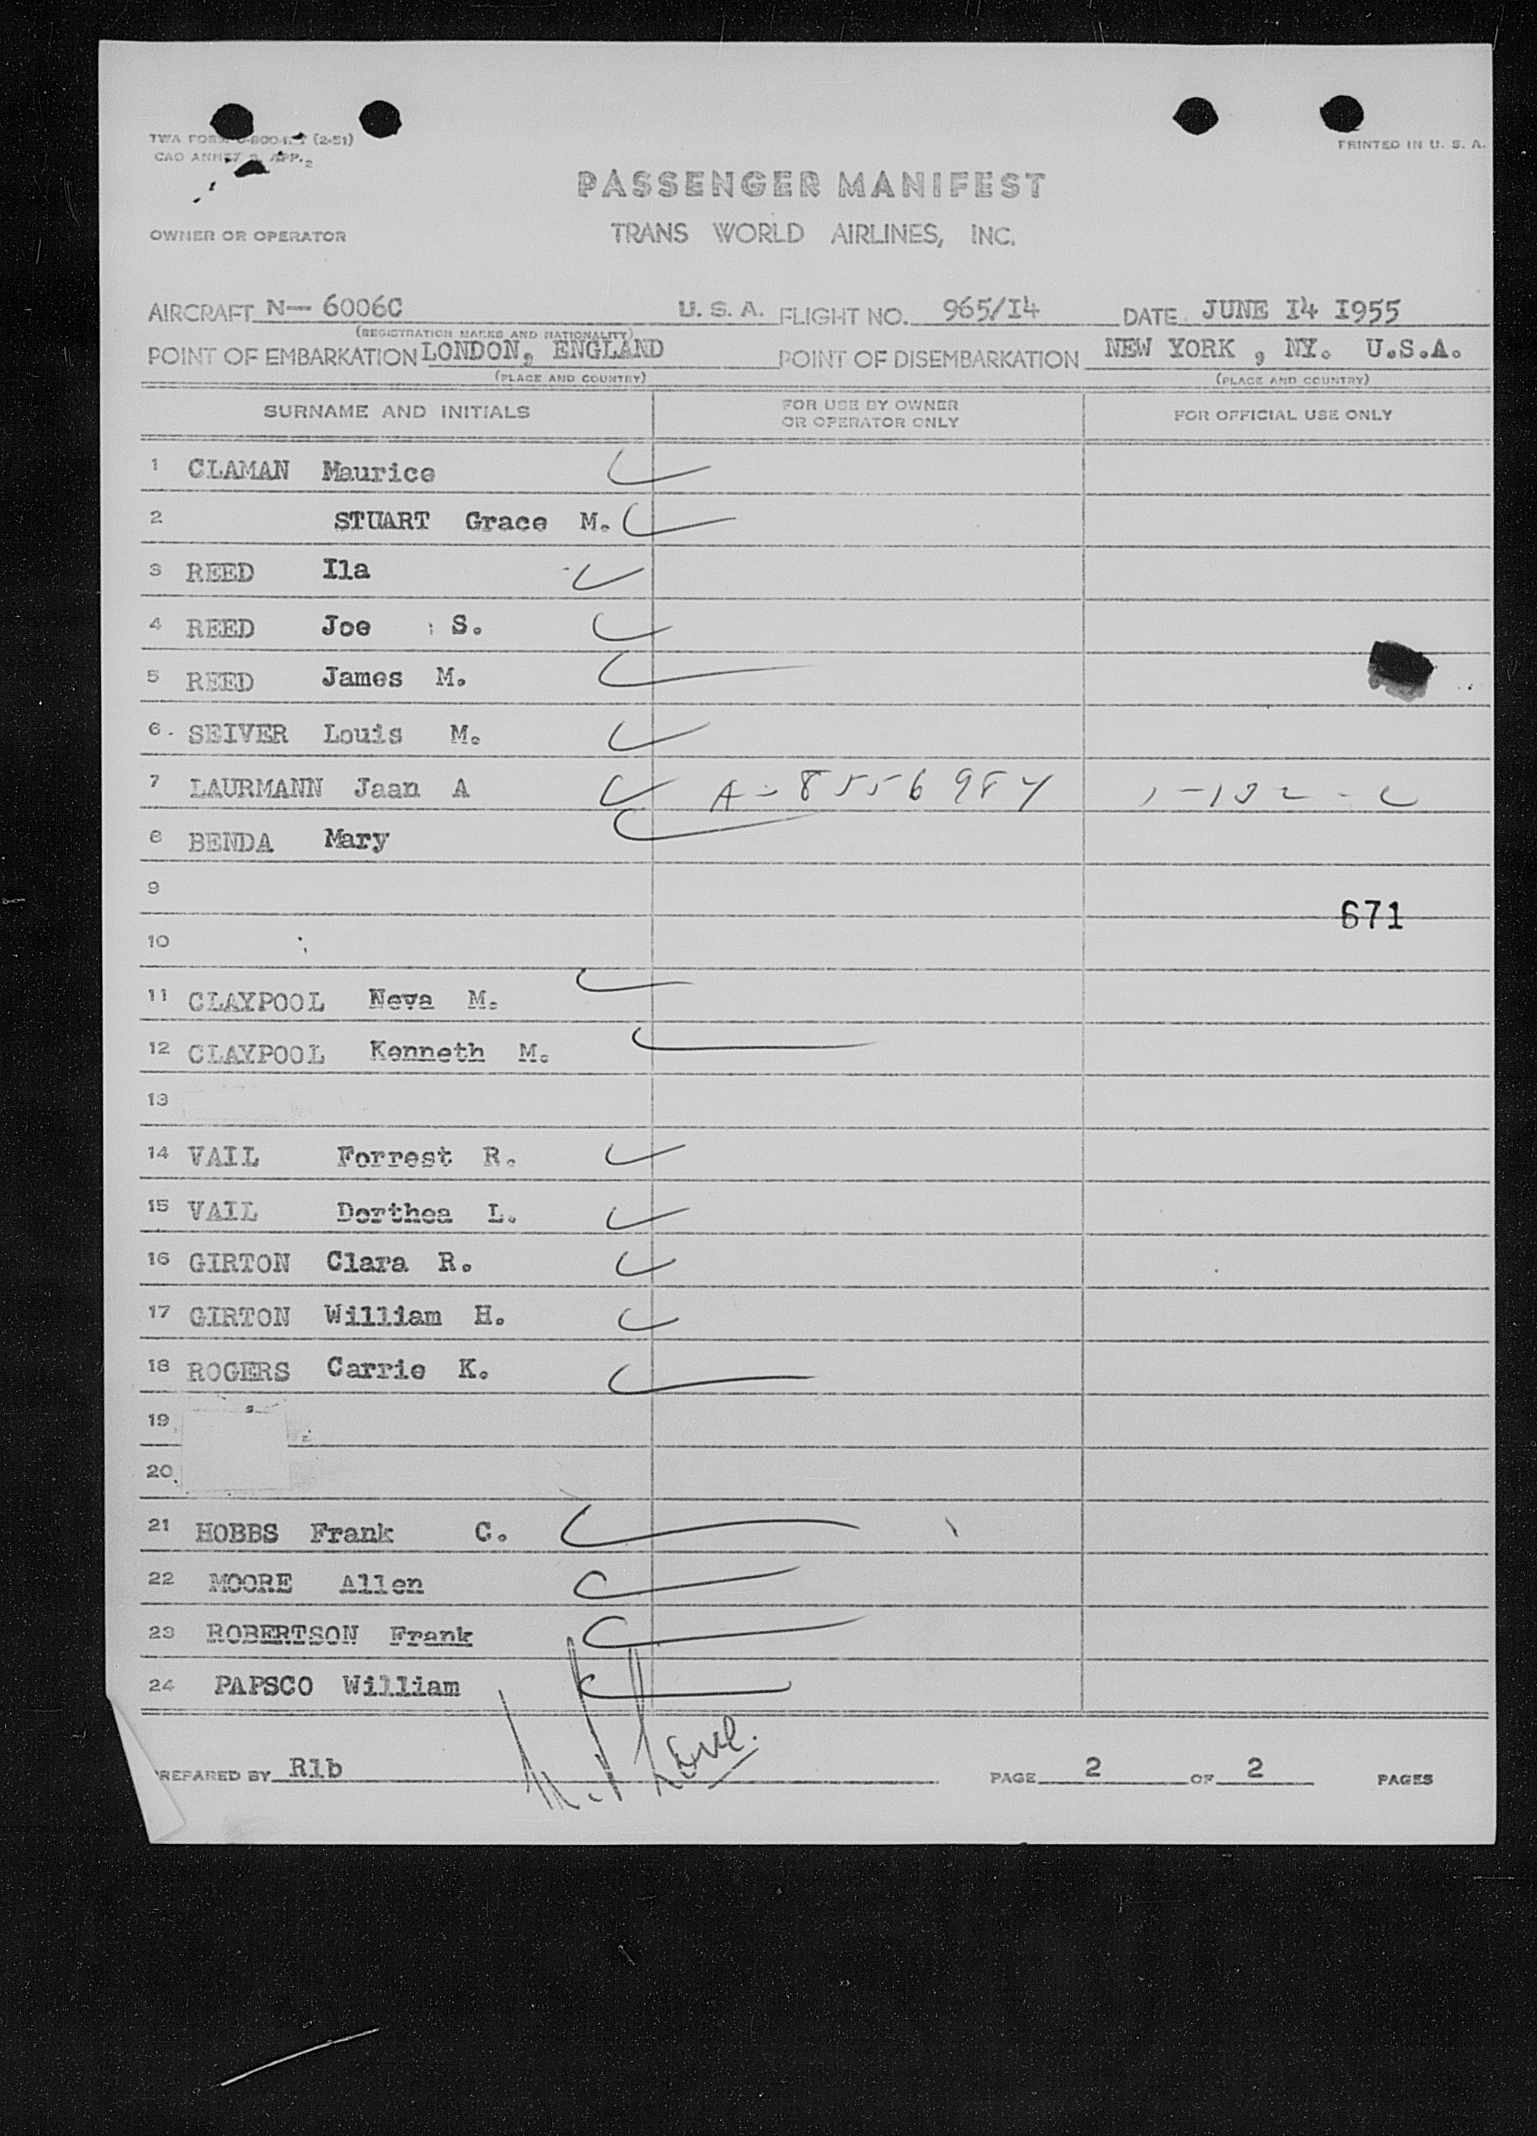 TWA FORM (2-51)
PRINTED IN U. S. A.
PASSENGER MANIFEST
OWNER OR OPERATOR TRANS WORLD AIRLINES, INC.
AIRCRAFT N— 6006C U. S. A. FLIGHT NO. 965/I4 DATE JUNE I4 I955
(REGISTRATION MARKS AND NATIONALITY)
POINT OF EMBARKATION LONDON, ENGLAND POINT OF DISEMBARKATION NEW YORK , NY. U.S.A.
(PLACE AND COUNTRY) (PLACE AND COUNTRY)
SURNAME AND INITIALS FOR USE BY OWNER OR OPERATOR ONLY FOR OFFICIAL USE ONLY
1 CLAMAN Maurice
2 STUART Grace M.
3 REED Ila
4 REED Joe S.
5 REED James M.
6. SEIVER Louis M.
7 LAURMANN Jaan A A-8556984
8 BENDA Mary
9
671
10
11 CLAYPOOL Neva M.
12 CLAYPOOL Kenneth M.
13
14 VAIL Forrest R.
15 VAIL Dorthea L.
16 GIRTON Clara R.
17 GIRTON William H.
18 ROGERS Carrie K.
19
20
21 HOBBS Frank C.
22 MOORE Allen
23 ROBERTSON Frank
24 PAPSCO William
PREPARED BY Rlb PAGE 2 OF 2 PAGES